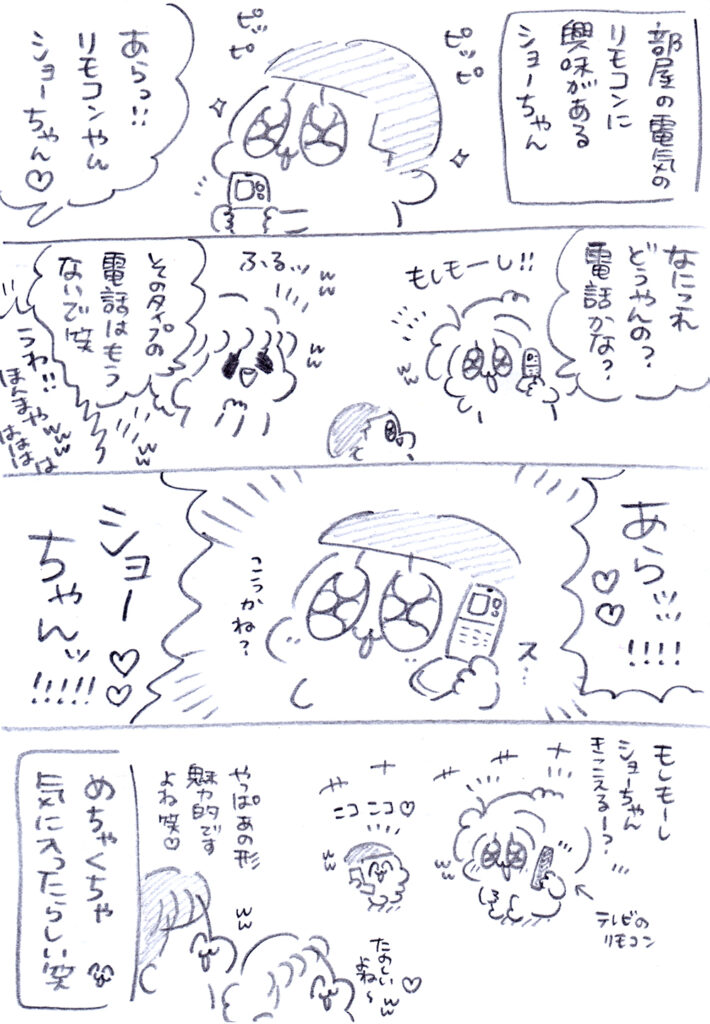 部屋の電気の
リモコンに
興味がある
ショーちゃん
ピッピ
ピッピ
あらっ!!
リモコンやん
ショーちゃん♡
なにこれ
どうやんの?
電話かな?
もしもーし!!
ふるッww
ww
ww
そのタイプの
電話はもう
ないで笑
ww
うわ!!
ほんまやwww
はははは
あらッッ
♡♡!!!!
ス…
こうかね?
ショー♡♡
ちゃんッ!!!!!
もしもーし
ショーちゃん
きこえるー?
テレビの
リモコン
ww
ニコニコ♡
ww
やっぱあの形
魅力的です
よね笑♡
ww
たのしいww
よね〜♡
めちゃくちゃ
気に入ったらしい笑